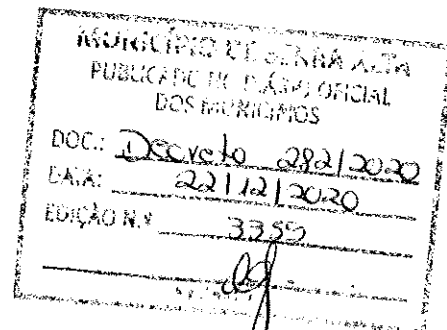 MUNICÍPIO DE SERRA ALTA
PUBLICADO NO DIÁRIO OFICIAL
DOS MUNICÍPIOS
DOC.: Decreto 282/2020
DATA: 22/12/2020
EDIÇÃO N.º 3355